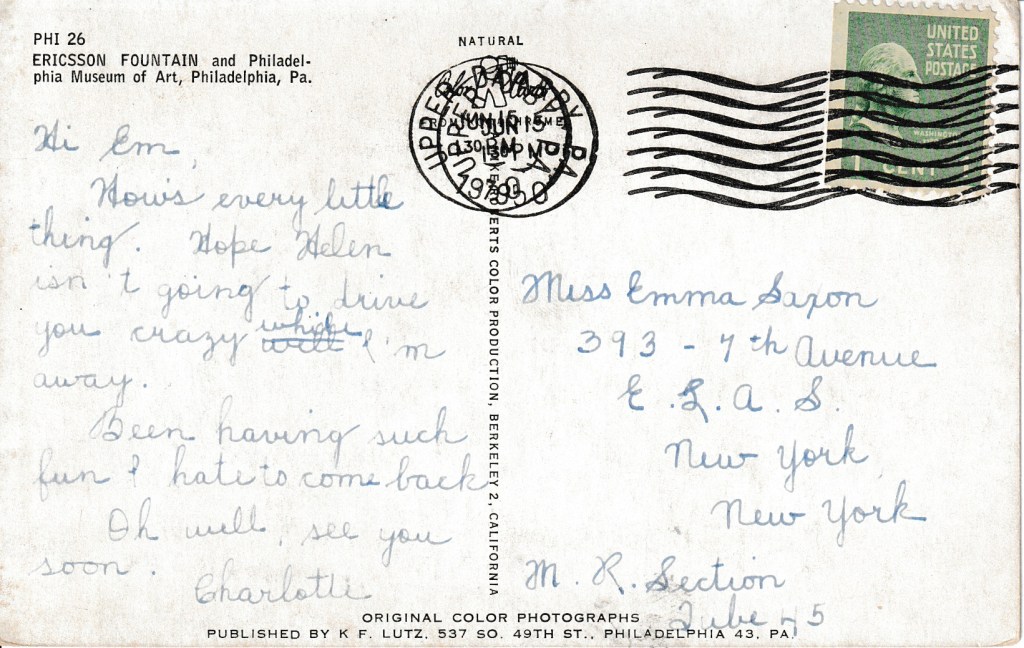 PHI 26
ERICSSON FOUNTAIN and Philadel-
phia Museum of Art, Philadelphia, Pa.
NATURAL
UPPER DARBY PA.
JUN 15
PM
1950
UNITED
STATES
POSTAGE
WASHINGTON
1 CENT
Hi Em,
How's every little
thing. Hope Helen
isn't going to drive
you crazy while I'm
away.
Been having such
fun I hate to come back
Oh well, see you
soon.
Charlotte
COLOR PRODUCTION, BERKELEY 2, CALIFORNIA
Miss Emma Saxon
393 - 7th Avenue
E.L.A.S.
New York,
New York
M. R. Section
Tube 45
ORIGINAL COLOR PHOTOGRAPHS
PUBLISHED BY K F. LUTZ, 537 SO. 49TH ST., PHILADELPHIA 43, PA.